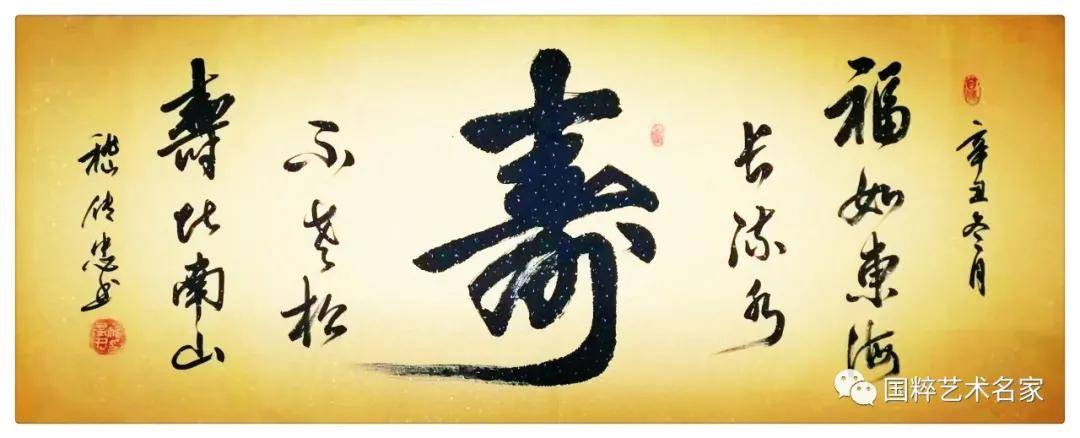 辛丑冬月
福如東海
长流水
寿
不老松
壽比南山
嵇传忠书
国粹艺术名家